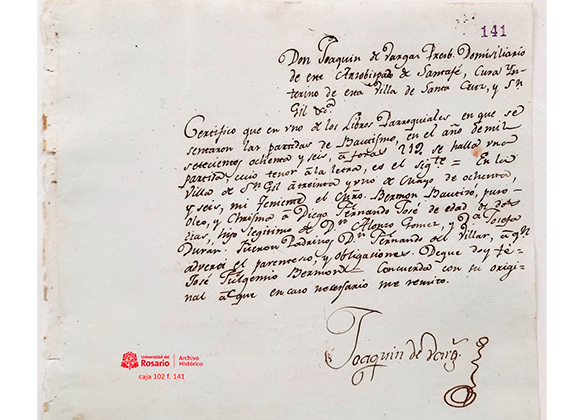 141
Don Joaquin de Vargas Presb. Domiciliario
de este Arzobispado de Santafé, Cura Yn-
terino de esta Villa de Santa Cruz, y Sn
Gil &ca
Certifico que en vno de los Libros Parroquiales en que se
sentaron las partidas de Bautismo, en el año de mil
setecientos ochenta y seis, a fojas 219 se halla vna
partida, cuio tenor a la letra, es el sigte = En la
Villa de Sn Gil a treinta y vno de Mayo de ochenta,
y seis, mi Teniente el Mro. Bermon Bautizó, puso
Oleo, y Chrisma a Diego Fernando José de edad de dos
dias, hijo legitimo de Dn Alonso Gomez, y Da Josefa
Duran. Fueron Padrinos Dn Fernando del Villar, a qn
advertí el parentesco, y obligaciones. De que doy fè =
José Fulgencio Bermond = Concuerda con su origi-
nal a que en caso necesario me remito.
Joaquin de Varg.s
Universidad del
Rosario
Archivo
Histórico
caja 102 f. 141